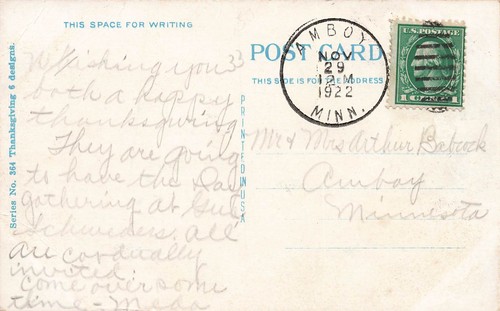 THIS SPACE FOR WRITING
Wishing you
both a happy
thanksgiving
They are going
to have the
gathering at
all
are cordually
invited.
come over some
time - Meda
Series No. 364 Thanksgiving 6 designs.
PRINTED IN USA
POST CARD
THIS SIDE IS FOR THE ADDRESS
AMBOY
NOV
29
12 M
1922
MINN.
U.S. POSTAGE
1 CENT 1
Mr & Mrs Arthur Babcock
Amboy
Minnesota